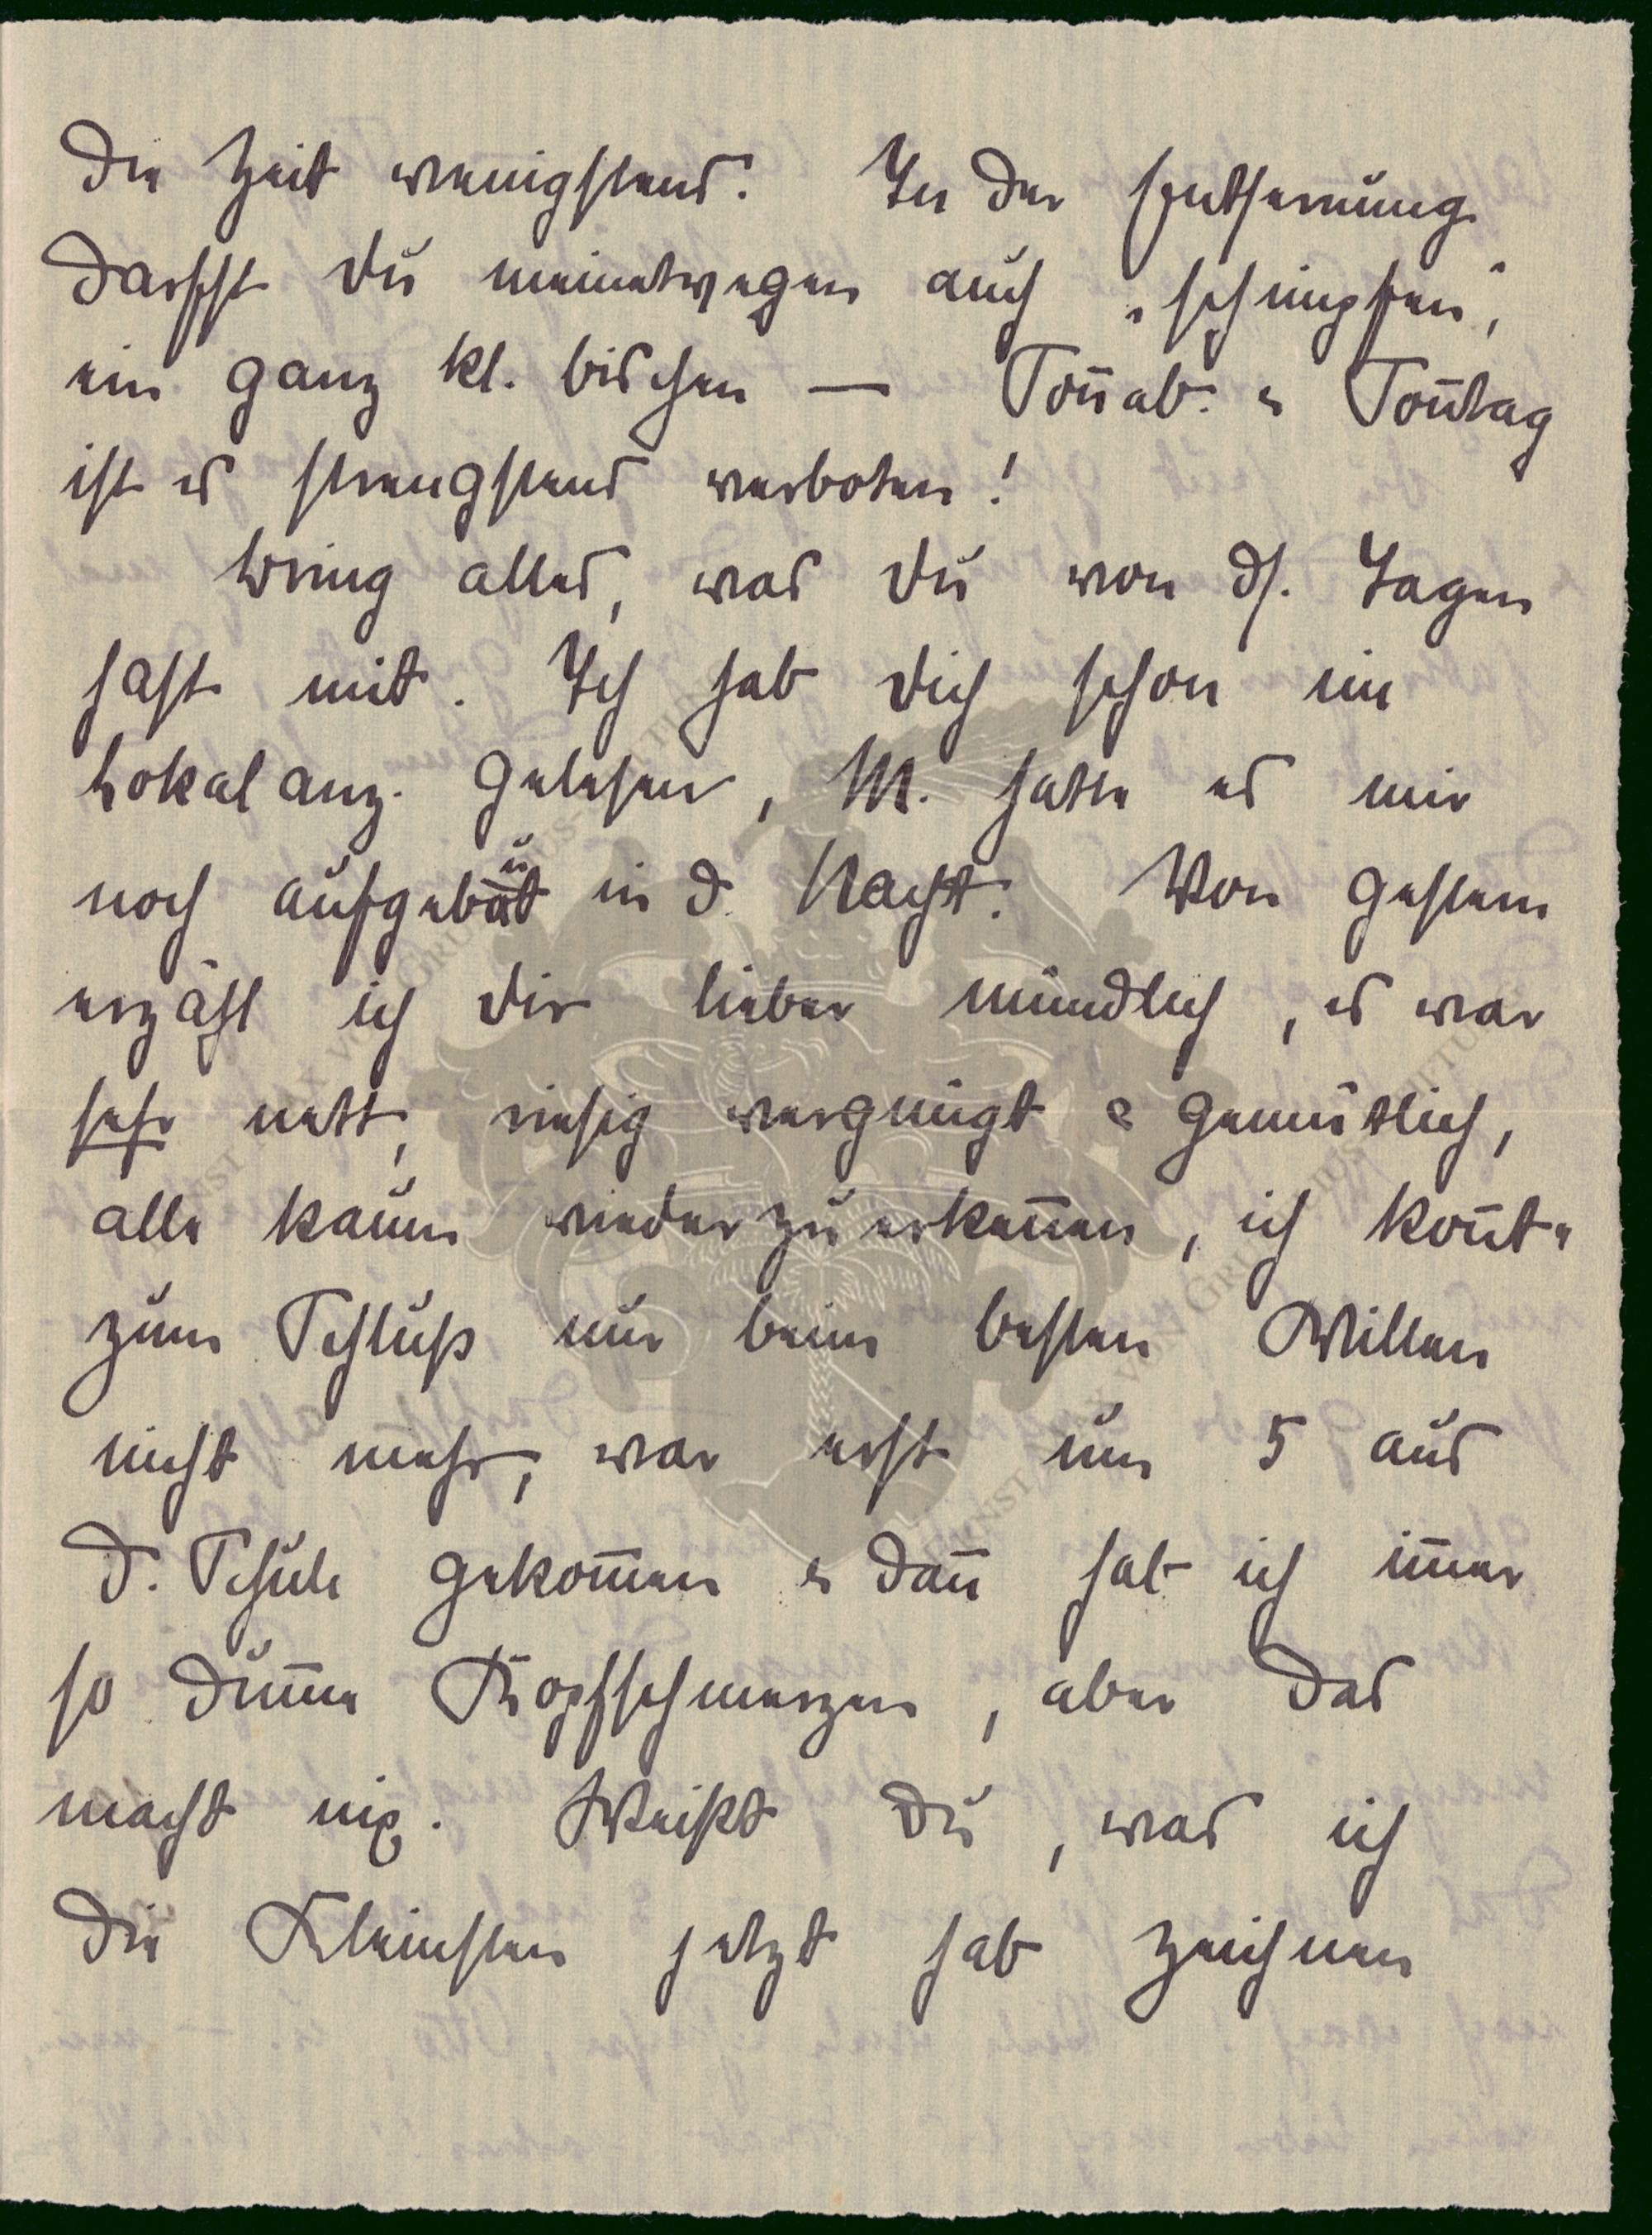 die Zeit wenigstens. In der Entfernung
darfst Du meinetwegen auch „schimpfen",
ein ganz kl. bischen — Soñab. u Soñtag
ist es strengstens verboten!
Bring alles, was Du von ds. Tagen
hast mit. Ich hab Dich schon im
Lokalanz. gelesen, M. hatte es mir
noch aufgebaut in d. Nacht. Von gestern
erzähl ich Dir lieber mündlich, es war
sehr nett, riesig vergnügt & gemütlich,
alle kaum wiederzuerkeñen, ich koñt
zum Schluß nur beim besten Willen
nicht mehr, war erst um 5 aus
d. Schule gekom̄en u dañ hab ich im̄er
so dum̄e Kopfschmerzen, aber das
macht nix. Weißt Du, was ich
die Kleinsten jetzt hab zeichnen